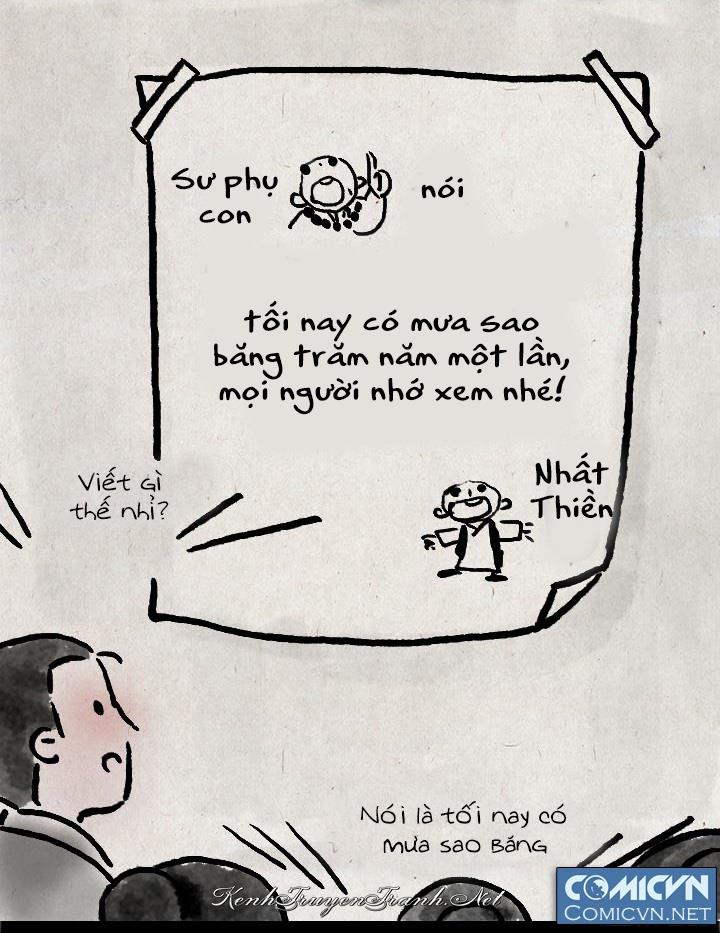 Sư phụ
con
nói
tối nay có mưa sao
băng trăm năm một lần,
mọi người nhớ xem nhé!
Nhất
Thiền
Viết gì
thế nhỉ?
Nói là tối nay có
mưa sao băng
KenhTruyenTranh.Net
COMICVN
COMICVN.NET